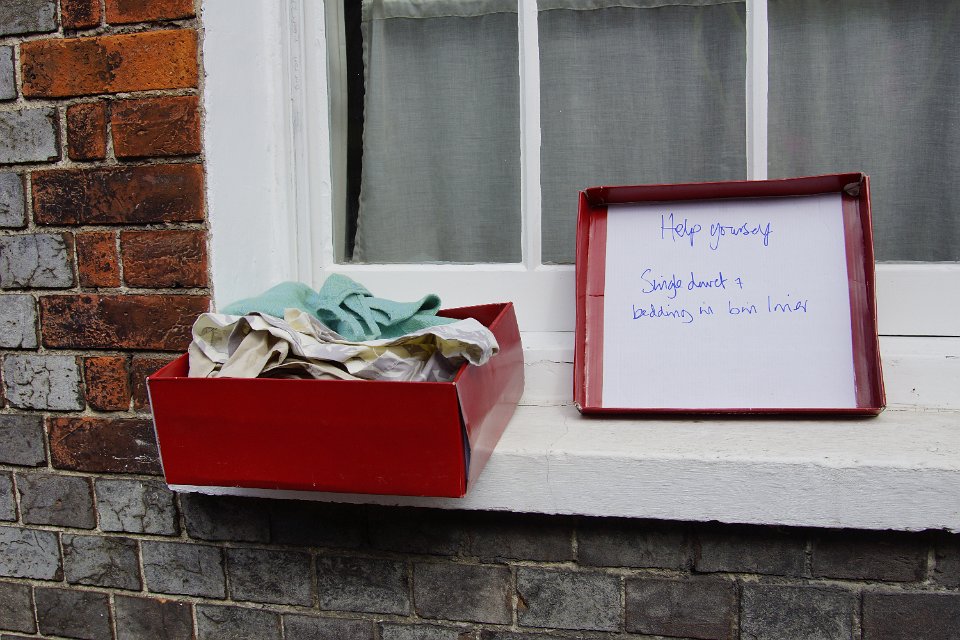 Help yourself
Single duvet +
bedding in bin liner